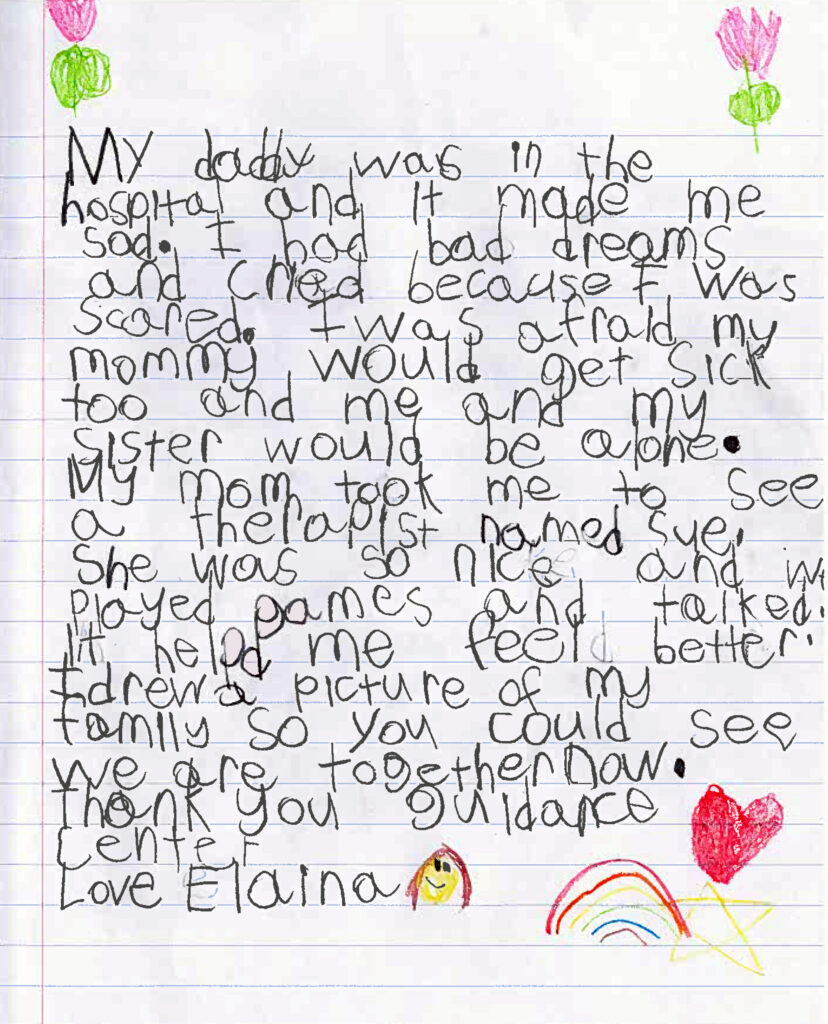 My daddy was in the
hospital and it made me
sad. I had bad dreams
and cried because I was
scared. I was afraid my
mommy would get sick
too and me and my
sister would be alone.
My mom took me to see
a therapist named Sue.
She was so nice and we
played games and talked.
It helpd me feel better.
I drew a picture of my
family so you could see
we are together now.
Thank you guidance
Center
Love Elaina